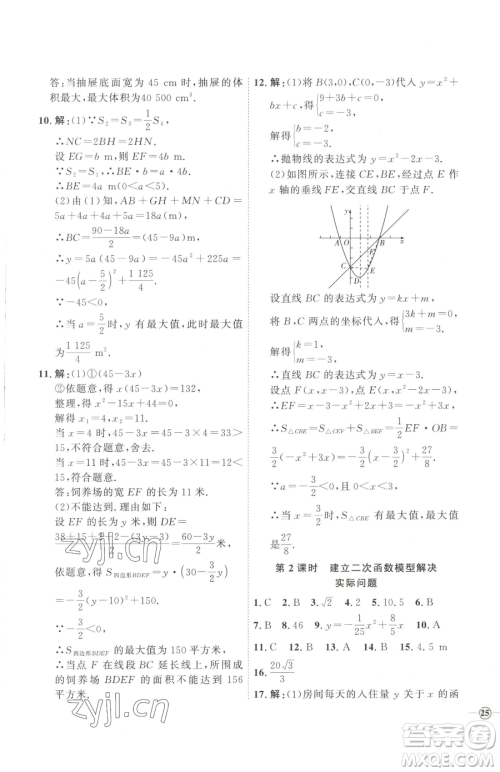 答:当抽屉底面宽为 45 cm 时,抽屉的体
积最大,最大体积为40 500 cm³.
10. 解:(1)∵S₂=S₃=1/2 S₄,
∴NC=2BH=2HN.
设 EG=b m,则 EF=4b m.
∵S₁=S₂,
∴BE=4a m.
(2)由(1)知,AB+GH+MN+CD=
5a+4a+4a+5a=18a(m).
∴BC=(90-18a)/2=(45-9a) m.
∴y=5a(45-9a)=
-45(a-5/2)²+1 125/4.
∵-45<0,
∴当 a=5/2 时,y 有最大值,此时最大值为
1 125/4 m².
11. 解:(1)①(45-3x)
②依题意,得 x(45-3x)=132,
整理,得 x²-15x+44=0,
解得 x₁=4,x₂=11.
当 x=4 时,45-3x=45-3×4=33>
15,不符合题意,舍去.
当 x=11 时,45-3x=45-3×11=12<
15,符合题意.
答:饲养场的宽 EF 为 11 米.
(2)不能达到.理由如下:
设 EF 的长为 y 米,则 DE=
(60-3y)/2 米.
依题意,得 S四边形BDEF=
-3/2(y-10)²+150.
∵-3/2<0,
∴S四边形BDEF的最大值为 150 平方米.
∴当点 F 在线段 BC 延长线上,所围成
的饲养场 BDEF 的面积不能达到 156
平方米.
12. 解:(1)将 B(3,0),C(0,-3)代入 y=x²+
bx+c,得{9+3b+c=0, c=-3,
解得{b=-2, c=-3.
∴抛物线的表达式为 y=x²-2x-3.
(2)如图所示,连接 CE,BE,过点 E 作
x 轴的垂线 FE,交直线 BC 于点 F.
y
A
O
B
x
F
C
E
设直线 BC 的表达式为 y=kx+m,
将 B,C 两点的坐标代入,得{3k+m=0, m=-3,
解得{k=1, m=-3.
∴直线 BC 的表达式为 y=x-3.
设点 F(x,x-3),点 E(x,x²-2x-3),
∴EF=x-3-x²+2x+3=-x²+3x.
∴S△CBE=S△CEF+S△BEF=1/2 EF·OB=
3/2(-x²+3x)=-3/2(x-3/2)²+27/8.
∵a=-3/2<0,
∴当 x=3/2 时,S△CBE有最大值,最大值是
27/8.
第 2 课时 建立二次函数模型解决
实际问题
1. C 2. B 3. √2 4. 2 5. 10.5 6. B
7. B 8. 46 9. y=-1/25 x²+8/5 x
11. C 12. B 13. A 14. B 15. 4.5 m
16. 20√3/3
17. 解:(1)房间每天的入住量 y 关于 x 的函
25